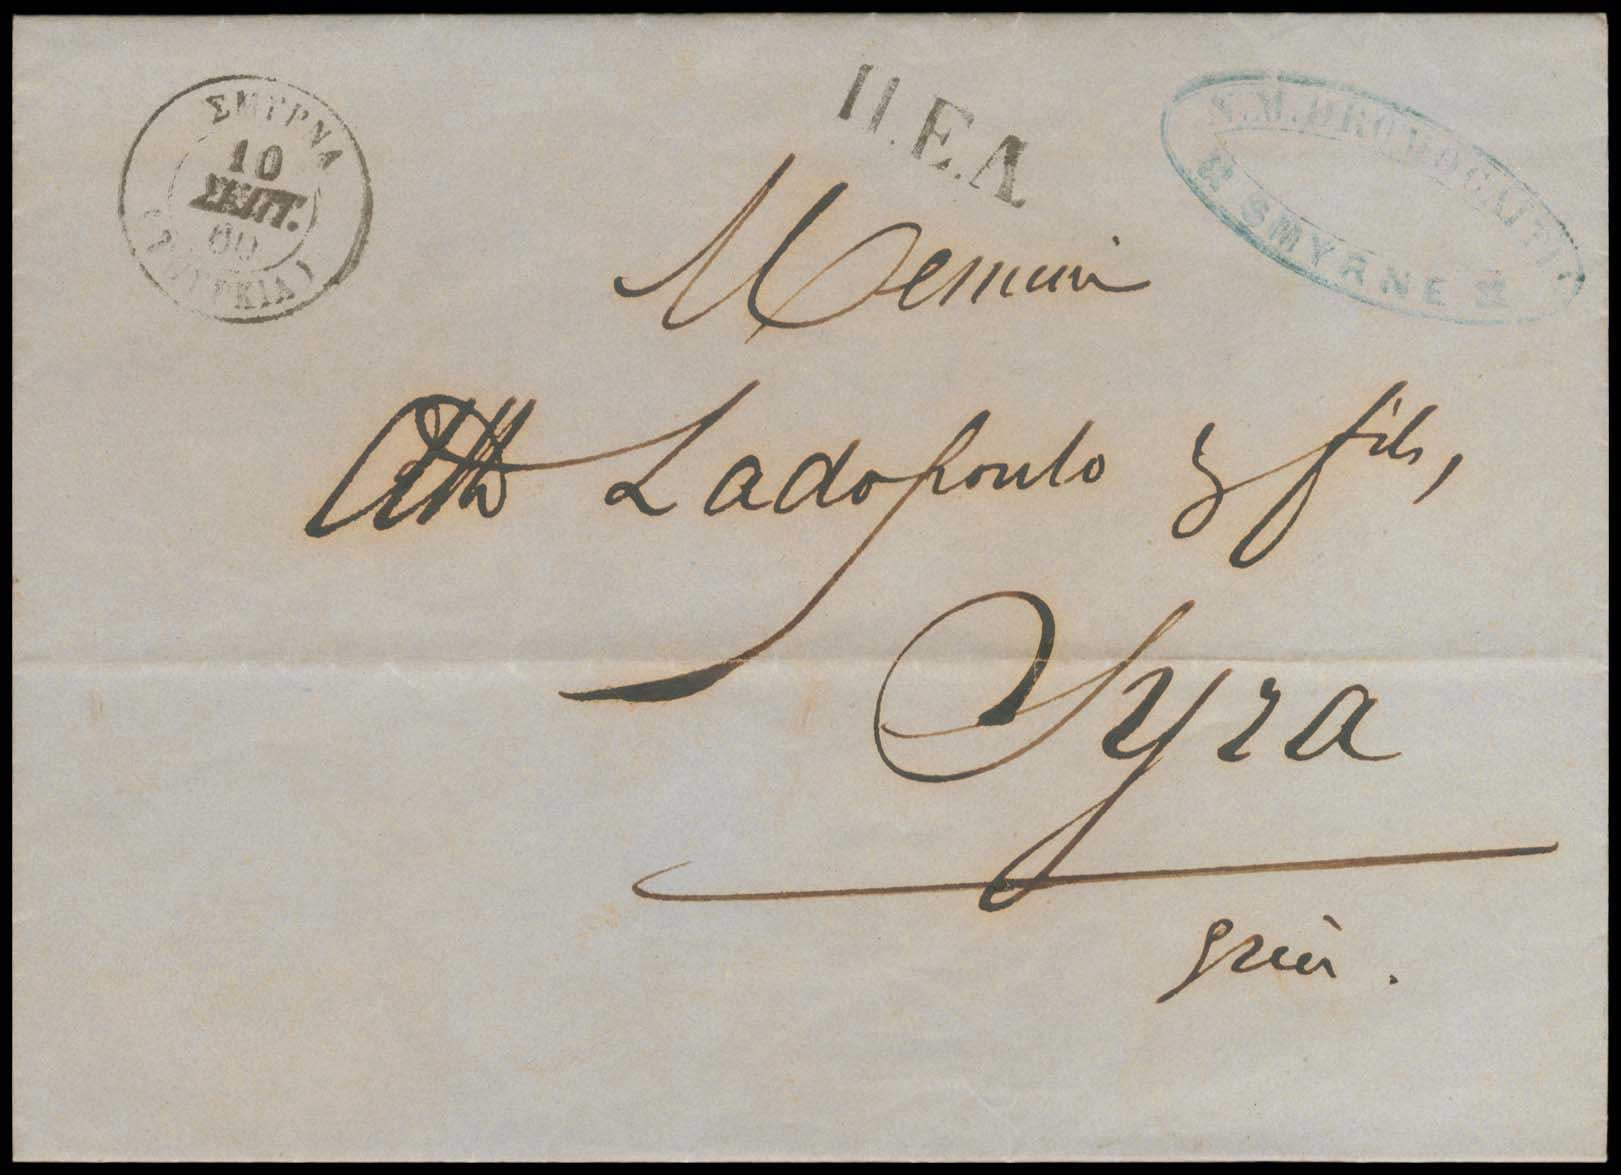 ΣΜΥΡΝΑ
10
ΣΕΠΤ.
60
(ΤΟΥΡΚΙΑ)
Π.Ε.Λ
SMYRNE
Messieurs
Ladopoulo & fils,
Syra